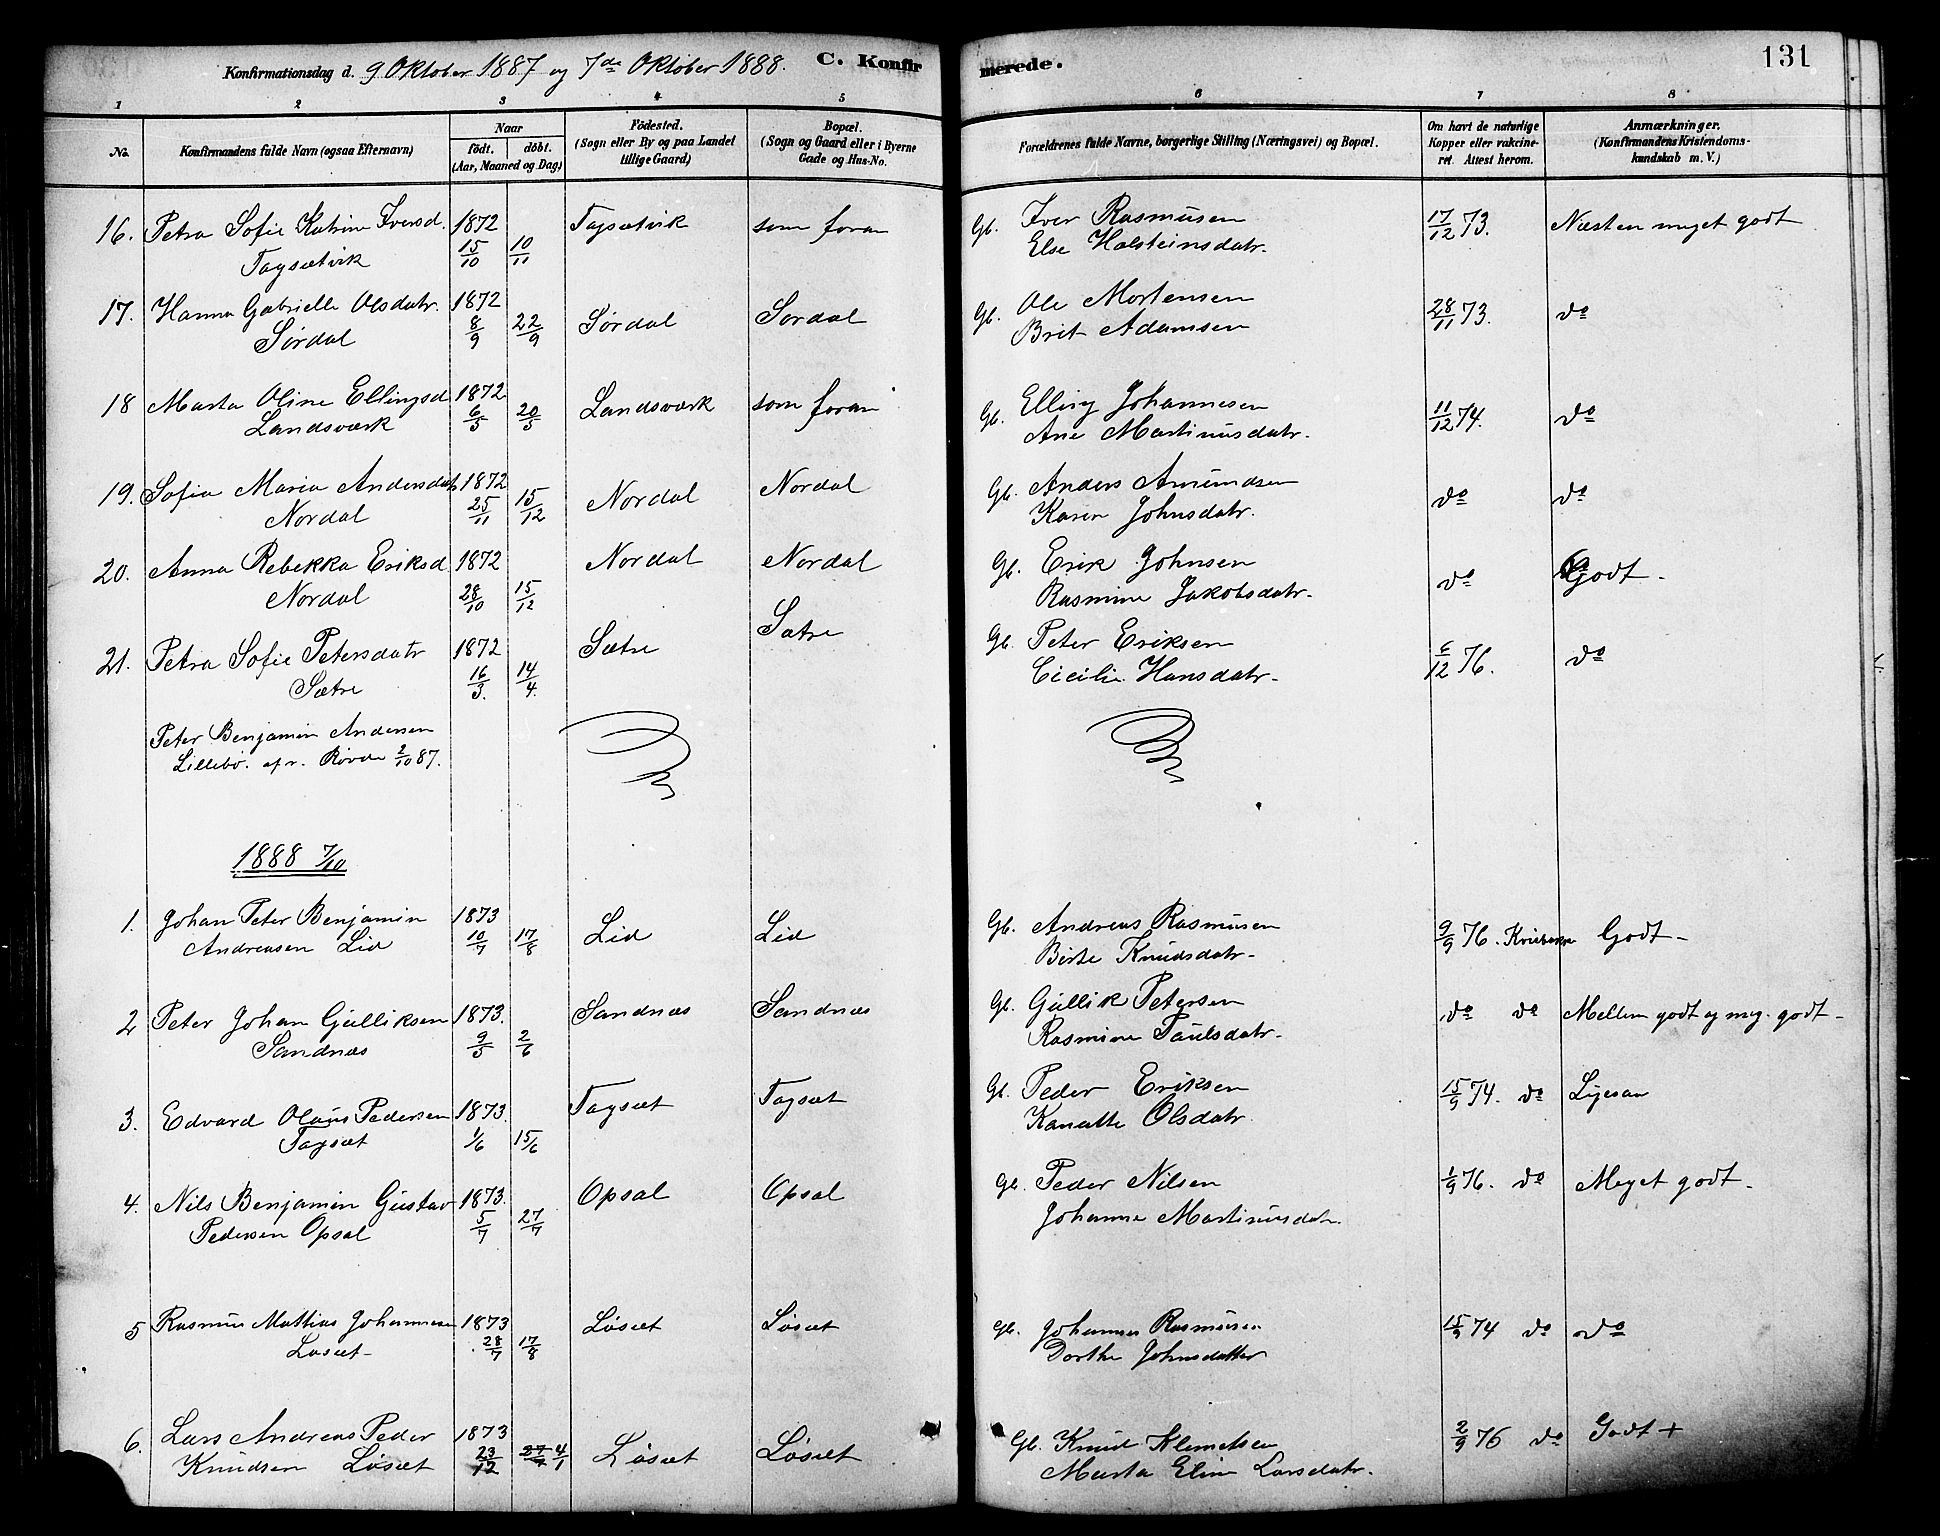 Konfirmationsdag d. 9 Oktober 1887 og 7de Oktober 1888. C. Konfirmerede. 131
1 2 3 4 5 6 7 8
No. Konfirmandens fulde Navn (ogsaa Efternavn) Naar født. døbt. (Aar, Maaned og Dag) Födested. (Sogn eller By og paa Landet tillige Gaard) Bopæl. (Sogn og Gaard eller i Byerne Gade og Hus-No. Forældrenes fulde Navne, borgerlige Stilling (Næringsvei) og Bopæl. Om havt de naturlige Kopper eller vakcineret. Attest herom. Anmærkninger. (Konfirmandens Kristendomskundskab m. V.)
16. Petra Sofie Katrine Iversd. 1872 Tagsætvik som foran Gb. Iver Rasmusen 17/12 73. Næsten meget godt
Tagsætvik 15/10 10/11 Else Holsteinsdatr.
17. Hanna Gabrielle Olsdatr. 1872 Sørdal Sørdal Gb. Ole Mortensen 28/11 73. do
Sørdal 8/9 22/9 Brit Adamsen
18 Marta Oline Ellingsd 1872 Landsværk som foran Gb. Elling Johannesen 11/12 74. do
Landsværk 6/5 20/5 Ane Martinusdatr.
19. Sofia Maria Andersdatr 1872 Nordal Nordal Gb. Anders Amundsen do do
Nordal 25/11 15/12 Karen Johnsdatr.
20. Anna Rebekka Eriksd 1872 Nordal Nordal Gb. Erik Johnsen do Godt -
Nordal 28/10 15/12 Rasmine Jakobsdatr.
21. Petra Sofie Petersdatr 1872 Sætre Sætre Gb. Peter Eriksen 6/12 76. do
Sætre 16/3. 14/4. Cicilie Hansdatr.
Peter Benjamin Andersen
Lillebø. af r. Røvde 2/10 87.
1888 7/10
1. Johan Peter Benjamin 1873 Lid Lid Gb. Andreas Rasmusen 9/9 76. Godt -
Andreasen Lid 10/7 17/8 Birte Knudsdatr.
2 Peter Johan Gulliksen 1873. Sandnæs Sandnæs Gb. Gullik Petersen do do Mellem godt og meg. godt -
Sandnæs 9/5 2/6 Rasmine Paulsdatr.
3. Edvard Olaus Pedersen 1873. Tagsæt Tagsæt Gb. Peder Eriksen 15/9 74. do Ligesaa
Tagsæt 1/6 15/6 Kanutte Olsdatr.
4. Nils Benjamin Gustav 1873. Opsal Opsal Gb. Peder Nilsen 1/9 76. do Meget godt -
Pedersen Opsal 5/7 27/7 Johanne Martinusdatr.
5 Rasmus Mattias Johannesen 1873 Løsæt Løsæt Gb. Johannes Rasmusen 15/9 74 do do
Løsæt 28/7 17/8 Dorthe Johnsdatter
6. Lars Andreas Peder 1873 Løsæt Løsæt Gb. Knud Klemetsen 2/9 76 do Godt +
Knudsen Løsæt 23/12 4/1 Marta Eline Larsdatr.